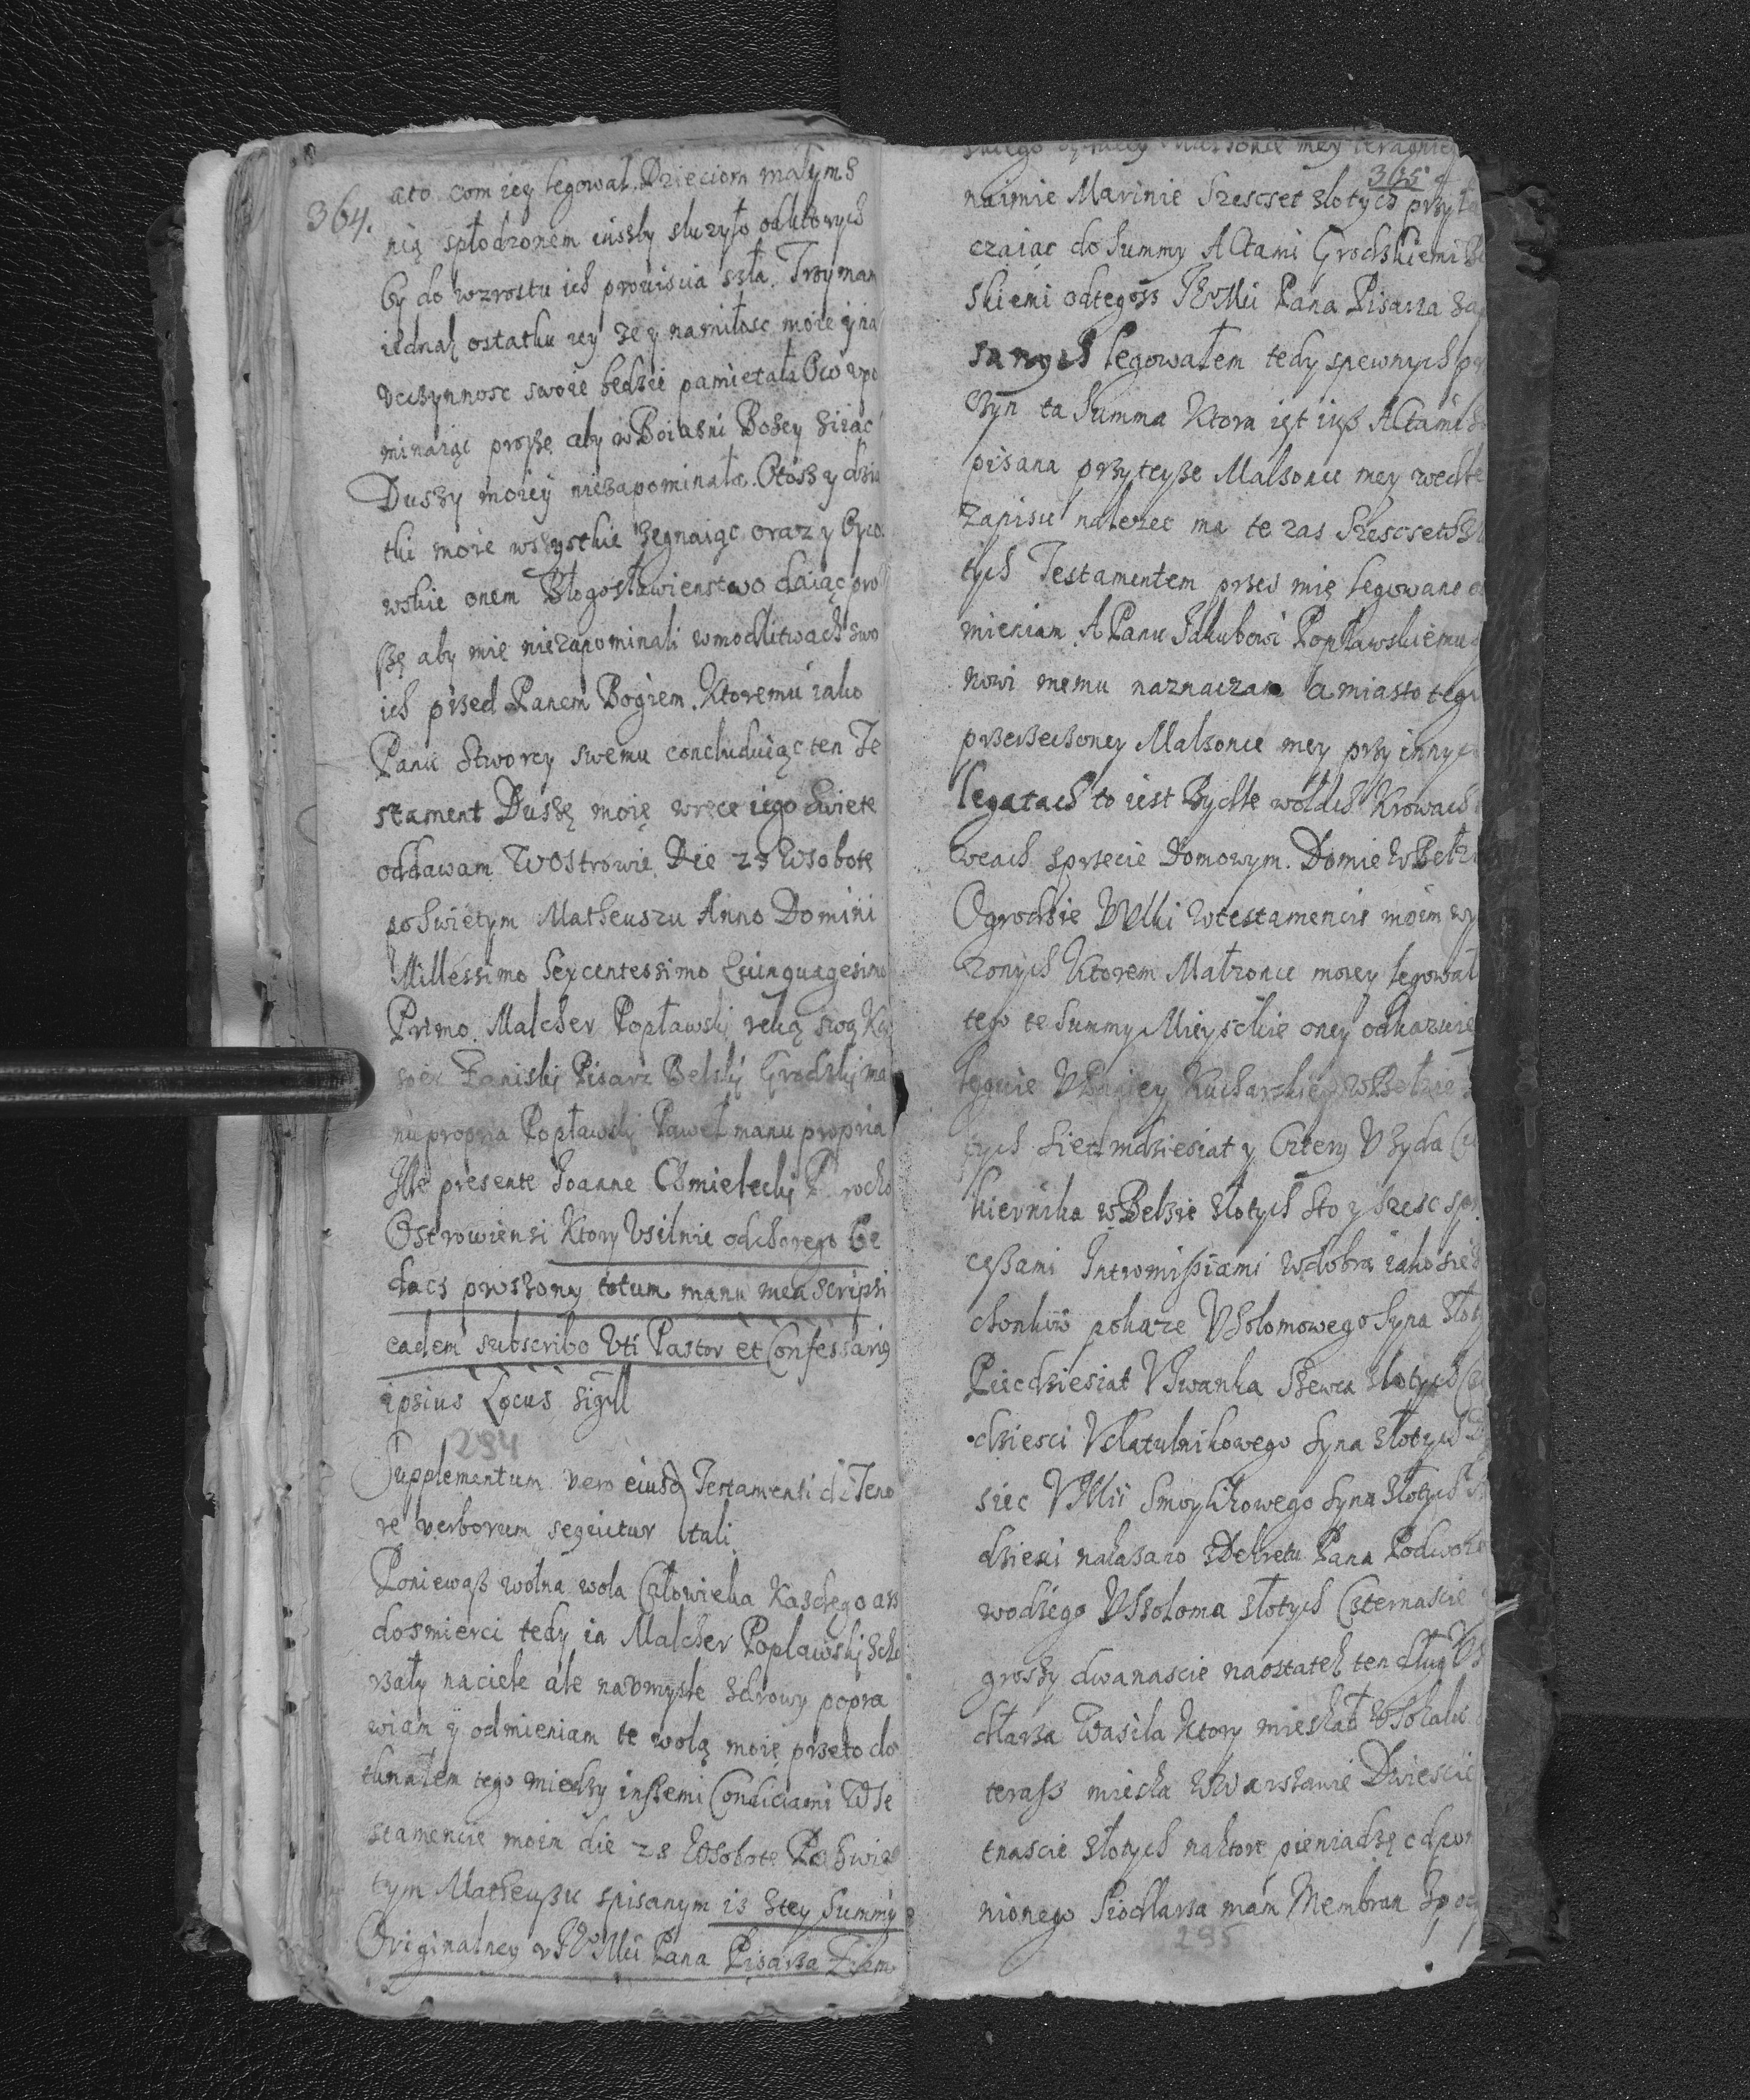 364.
ato com iey legował. Dzieciom małym s
nią spłodzonem iussby słuzyło odktorych
by do wzrostu ich prouisia szła. Trzymam
iednak ostatku iey ze y namiłosc moie y na
vczynnosc swoie będzie pamiętała O co vpo
minaiąc proszę aby w Boiaśni Bozey ziiąc
Duszy moiey niezapominała. Otosz y dzia
tki moie wszystkie zegnaiąc oraz y Oyco
wskie onem Błogosławienstwo daiąc pro
szę aby mię niezapominali wmodlitwach swo
ich przed Panem Bogiem. Ktoremu iako
Panu Stworcy swemu concluduiąc ten Te
stament Duszę moię wręce iego Swiete
oddawam Wostrowie Die 23 Wsobote
poswiętym Matheuszu Anno Domini
Millessimo Sexcentessimo Quinquagesimo
Primo. Malcher Popławskj ręką swą Ka
sper Zaniskj Pisarz Belskj Grodzkj ma
nu propria Popławskj Paweł manu propria
Me presente Joanne Chmieleckj P rocho
Ostrowiensi Ktory Vsilnie odchorego bę
dącs proszony totum manu mea scripsi
eadem subscribo Vti Pastor et Confessarius
ipsius Locus Sigill
294
Supplementum vero eiusd Testamenti de Teno
re verborum sequitur tali
Poniewasz wolna wola Człowieka Kazdego asz
dosmierci tedy ia Malcher Poplawskj Scho
rzały naciele ale navmysle zdrowy popra
wiam y odmieniam te wolą moię przeto do
tknałem tego miedzy inszemi Condiciami WTe
stamencie moim die 23 Wsobote Po Swie
tym Matheuszu spisanym isz stey Summy
Originalney v JEMci Pana Pisarza Ziem
365
naimie Marinie Szescset złotych przyłą
czaiąc do Summy Actami Grodzkiemi Be
skiemi odtegosz JEMci Pana Pisarza zap
sanych legowałem tedy spewnych przy
czyn ta Summa Ktora iest iusz Actami za
pisana przyteysze Małzonce mey wedle
Zapisu nalezec ma te zas Szescset zło
tych Testamentem przes mię legowane od
mieniam A Panu Jakubowi Popławskiemu sy
nowi memu naznaczam a miasto tego
przerzeczoney Małzonce mey przy innych
legatach to iest Bydle wołach Krowach
wcach sprzecie Domowym. Domie w Bełzie
Ogrodzie VVlki Wtestamencie moim wy
zonych Ktorem Małzonce moiey legował
tego te Summy Mieyschie oney odkazuię
leguie VPaniey Kucharskiey w Bełzie zło
tych Siedmdziesiat y Cztery Vzyda Cu
kiernika w Bełzie złotych Sto y szesc s pro
cessami Intromissiami Wdobra iako sie
chonkiw pokaze Vsolomowego Syna złoty
Piecdziesiat VIwanka Szewca złotych Cz
dziesci Vklatulnikowego Syna złotych D
siec VMii Smoylikowego Syna złotych
dziesci nakazano zDekretu Pana Podwoie
wodzego VSzoloma złotych Czternascie
groszy dwanascie naostatek ten dług VS
dlarza Wasila Ktory mieszkał WSokalu
terasz mieszka wWarszawie Dwiescie
tnascie złotych naktore pieniadze odpom
nionego Siodlarza mam Membran Spod
295